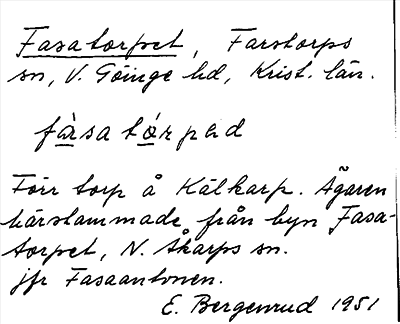 Fasatorpet, Farstorps
sn, V. Göinge hd, Krist. län.
fàsatórpəd
Förr torp å Kälkarp. Ägaren
härstammade från byn Fasa-
torpet, N. Åkarps sn.
jfr Fasaantonen.
E. Bergenrud 1951